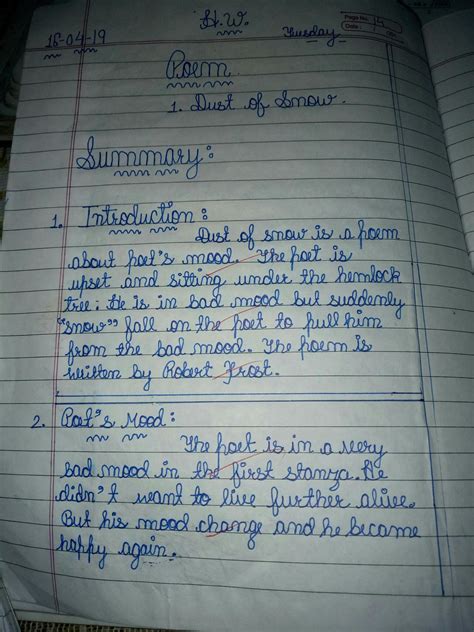 H.W.
Page No. 14
Date:
15-04-19
Tuesday
Poem
1. Dust of Snow.
Summary:
1. Introduction:
Dust of snow is a poem
about poet's mood. The poet is
upset and sitting under the hemlock
tree. He is in bad mood but suddenly
"snow" fall on the poet to pull him
from the bad mood. The poem is
written by Robert Frost.
2. Poet's Mood:
The poet is in a very
bad mood in the first stanza. He
didn't want to live further alive.
But his mood change and he became
happy again.